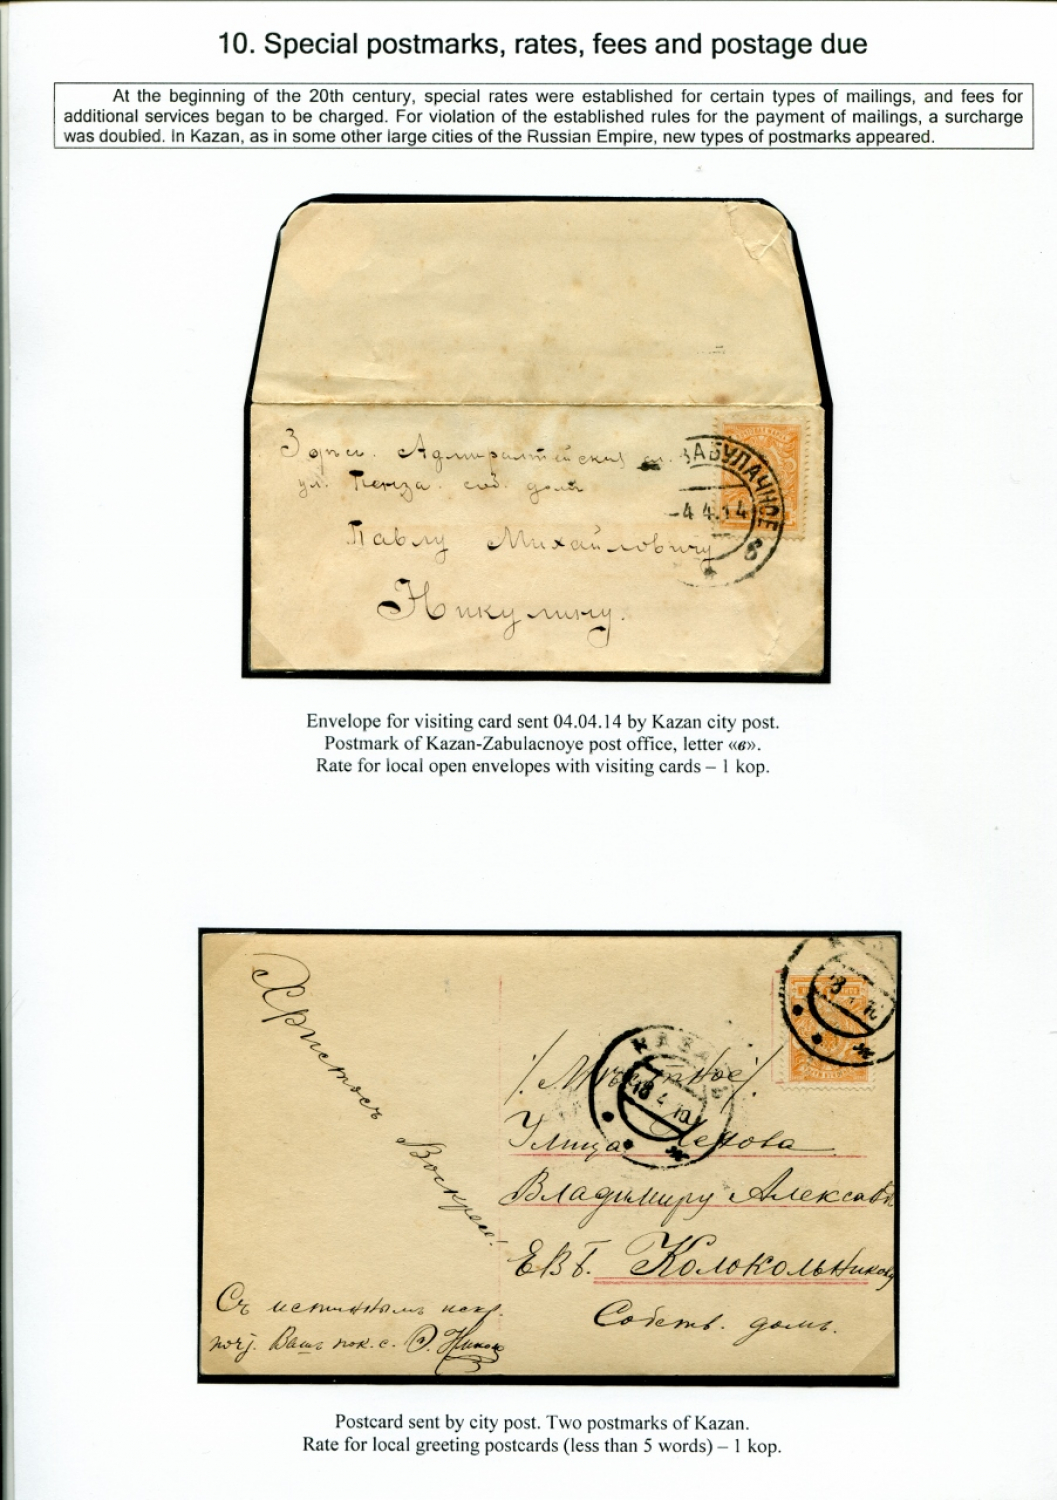 10. Special postmarks, rates, fees and postage due
At the beginning of the 20th century, special rates were established for certain types of mailings, and fees for
additional services began to be charged. For violation of the established rules for the payment of mailings, a surcharge
was doubled. In Kazan, as in some other large cities of the Russian Empire, new types of postmarks appeared.
ЗАБУЛАЧНОЕ
-4 4.14
в
Здѣсь. Адмиралтейская сл.
ул. Пенза. соб. домъ
Павлу Михайловичу
Никулину.
Envelope for visiting card sent 04.04.14 by Kazan city post.
Postmark of Kazan-Zabulacnoye post office, letter «в».
Rate for local open envelopes with visiting cards – 1 kop.
Христосъ Воскресе!
КАЗАНЬ
18 4 10
/Мѣстное/.
Улица
Владимиру
ЕВБ. Колокольникову
Собств. домъ.
Съ истиннымъ
почт. Вашъ пок. с.
Postcard sent by city post. Two postmarks of Kazan.
Rate for local greeting postcards (less than 5 words) – 1 kop.